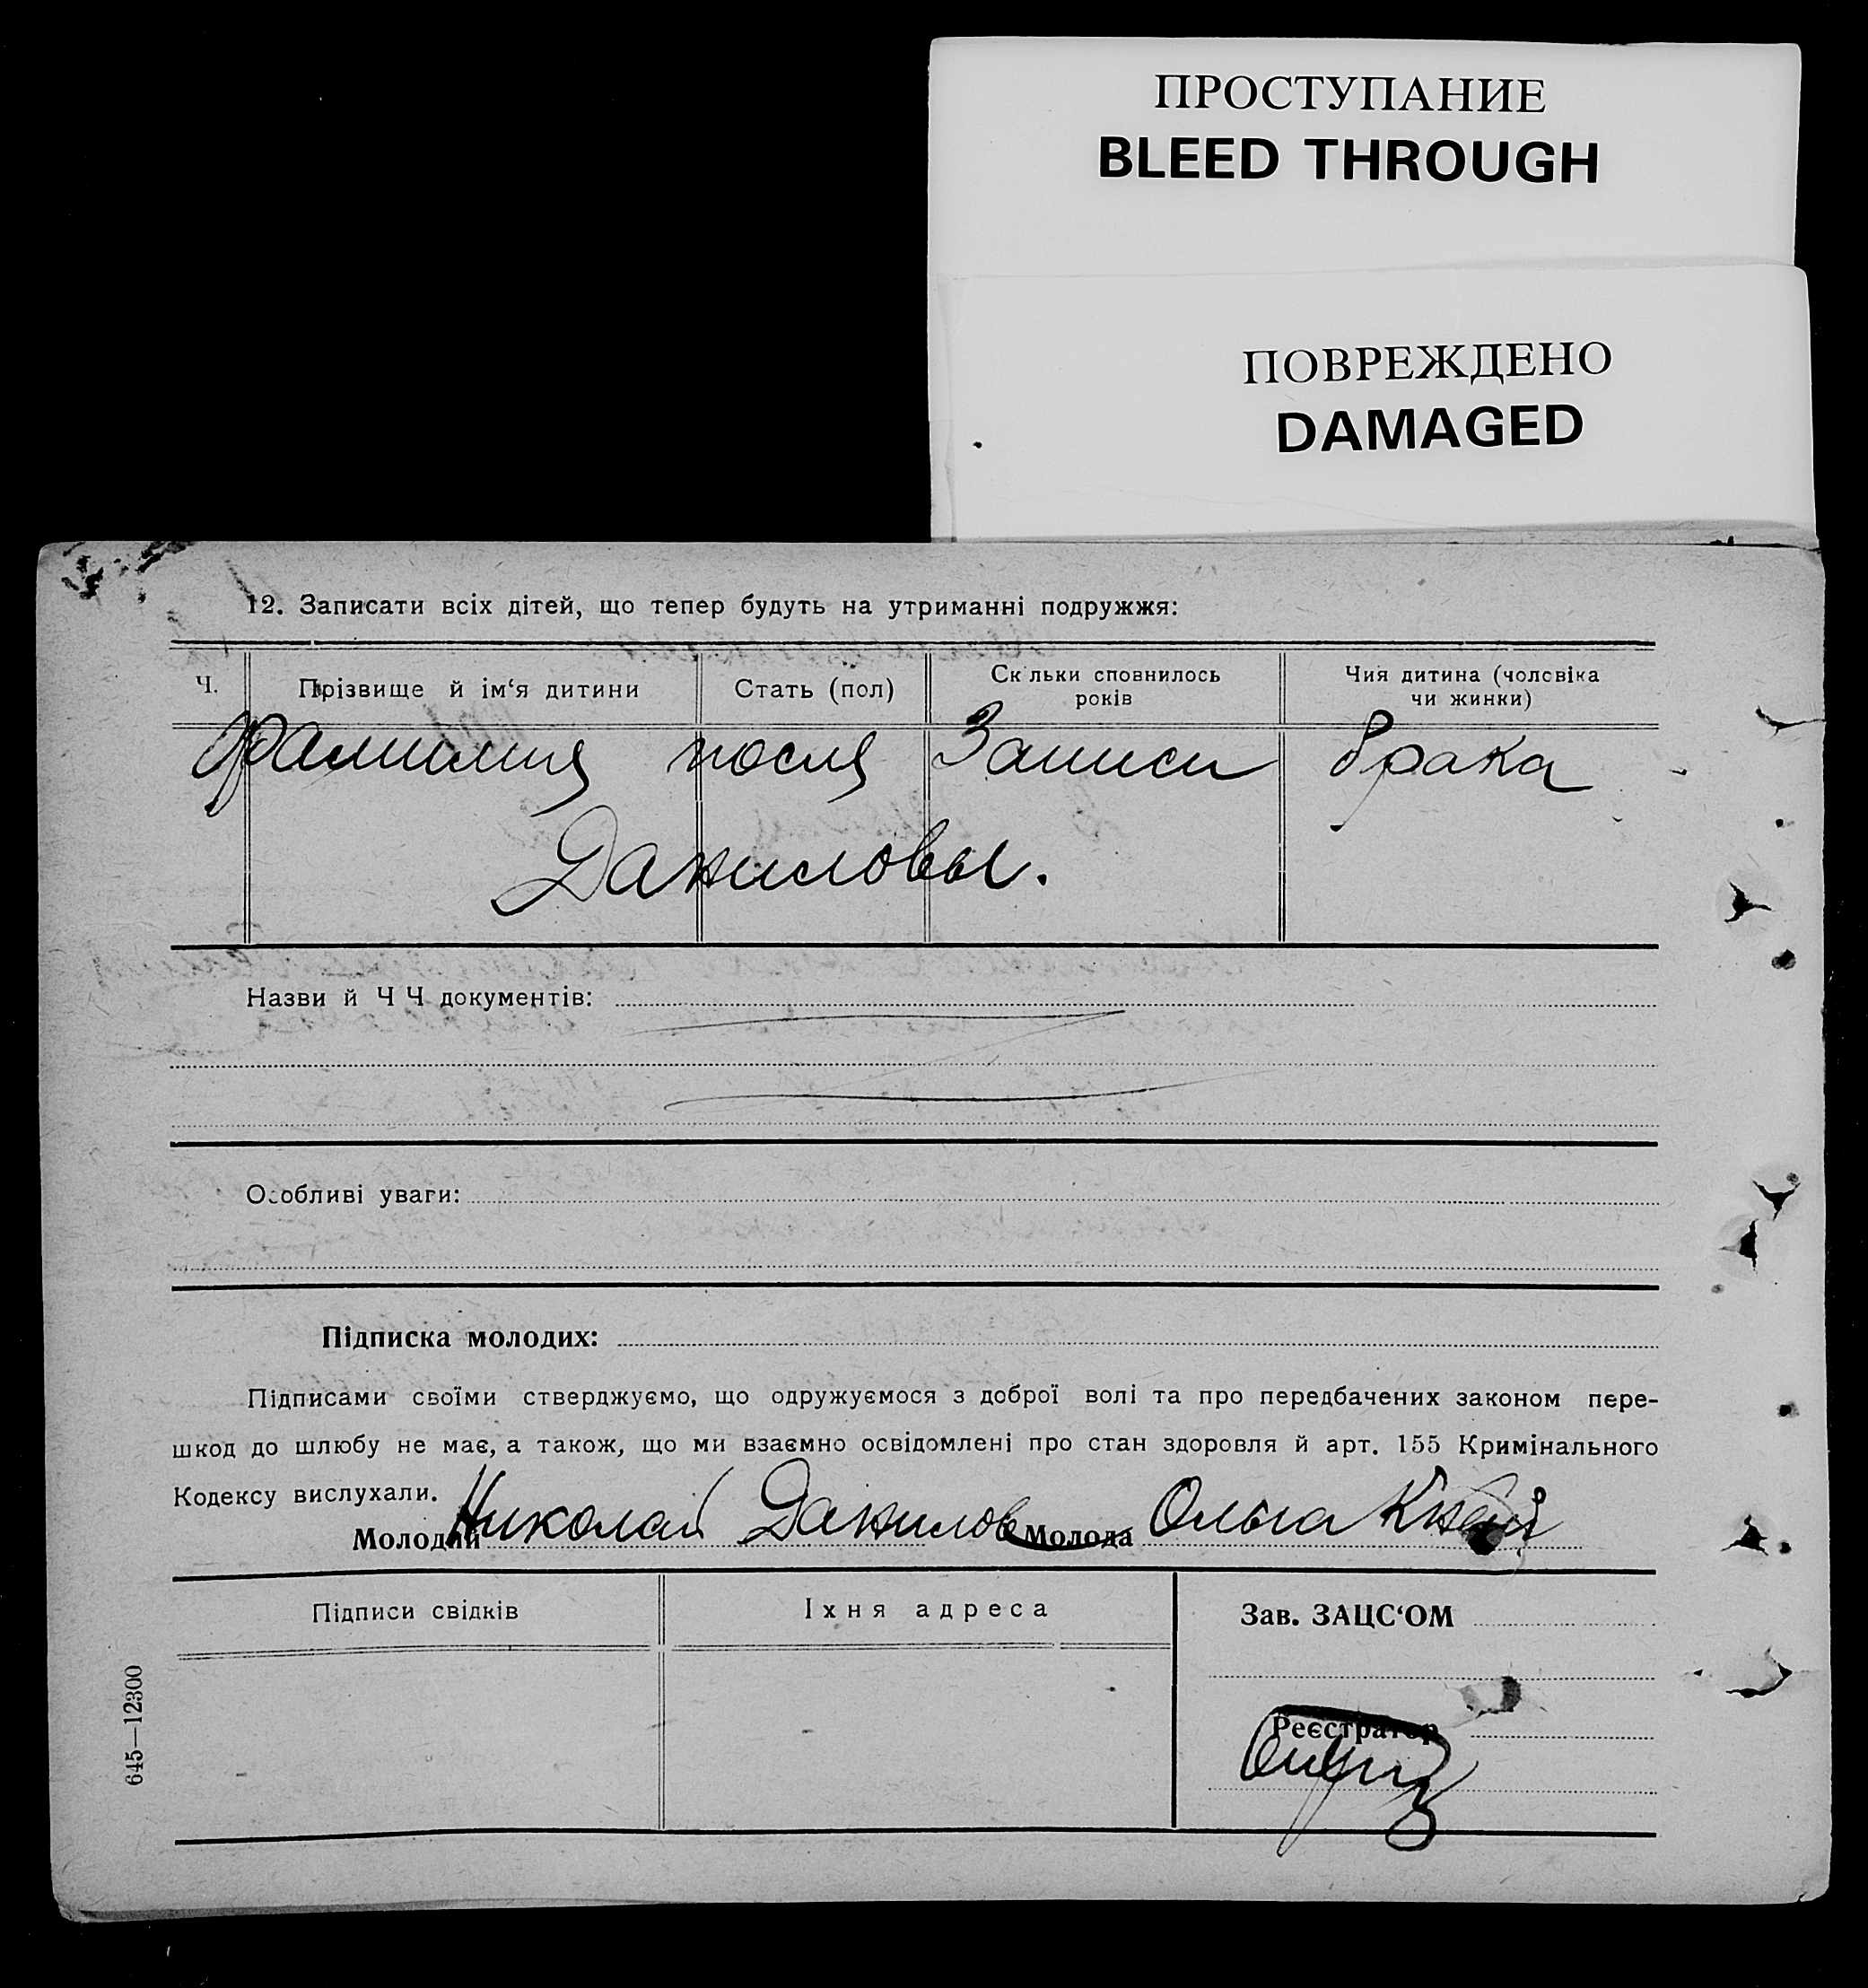 ПРОСТУПАНИЕ
BLEED THROUGH
ПОВРЕЖДЕНО
DAMAGED
12. Записати всіх дітей, що тепер будуть на утриманні подружжя:
Ч. Прізвище й ім‘я дитини Стать (пол) Ск льки сповнилось років Чия дитина (чоловіка чи жинки)
Фамилия после Записи брака
Даниловы.
Назви й Ч Ч документів:
Особливі уваги:
Підписка молодих:
Підписами своїми стверджуємо, що одружуємося з доброї волі та про передбачених законом пере-
шкод до шлюбу не має, а також, що ми взаємно освідомлені про стан здоровля й арт. 155 Кримінального
Кодексу вислухали.
Молодий Николай Данилов Молода Ольга
Підписи свідків Їхня адреса Зав. ЗАЦС‘ОМ
Реєстратор
645—12300